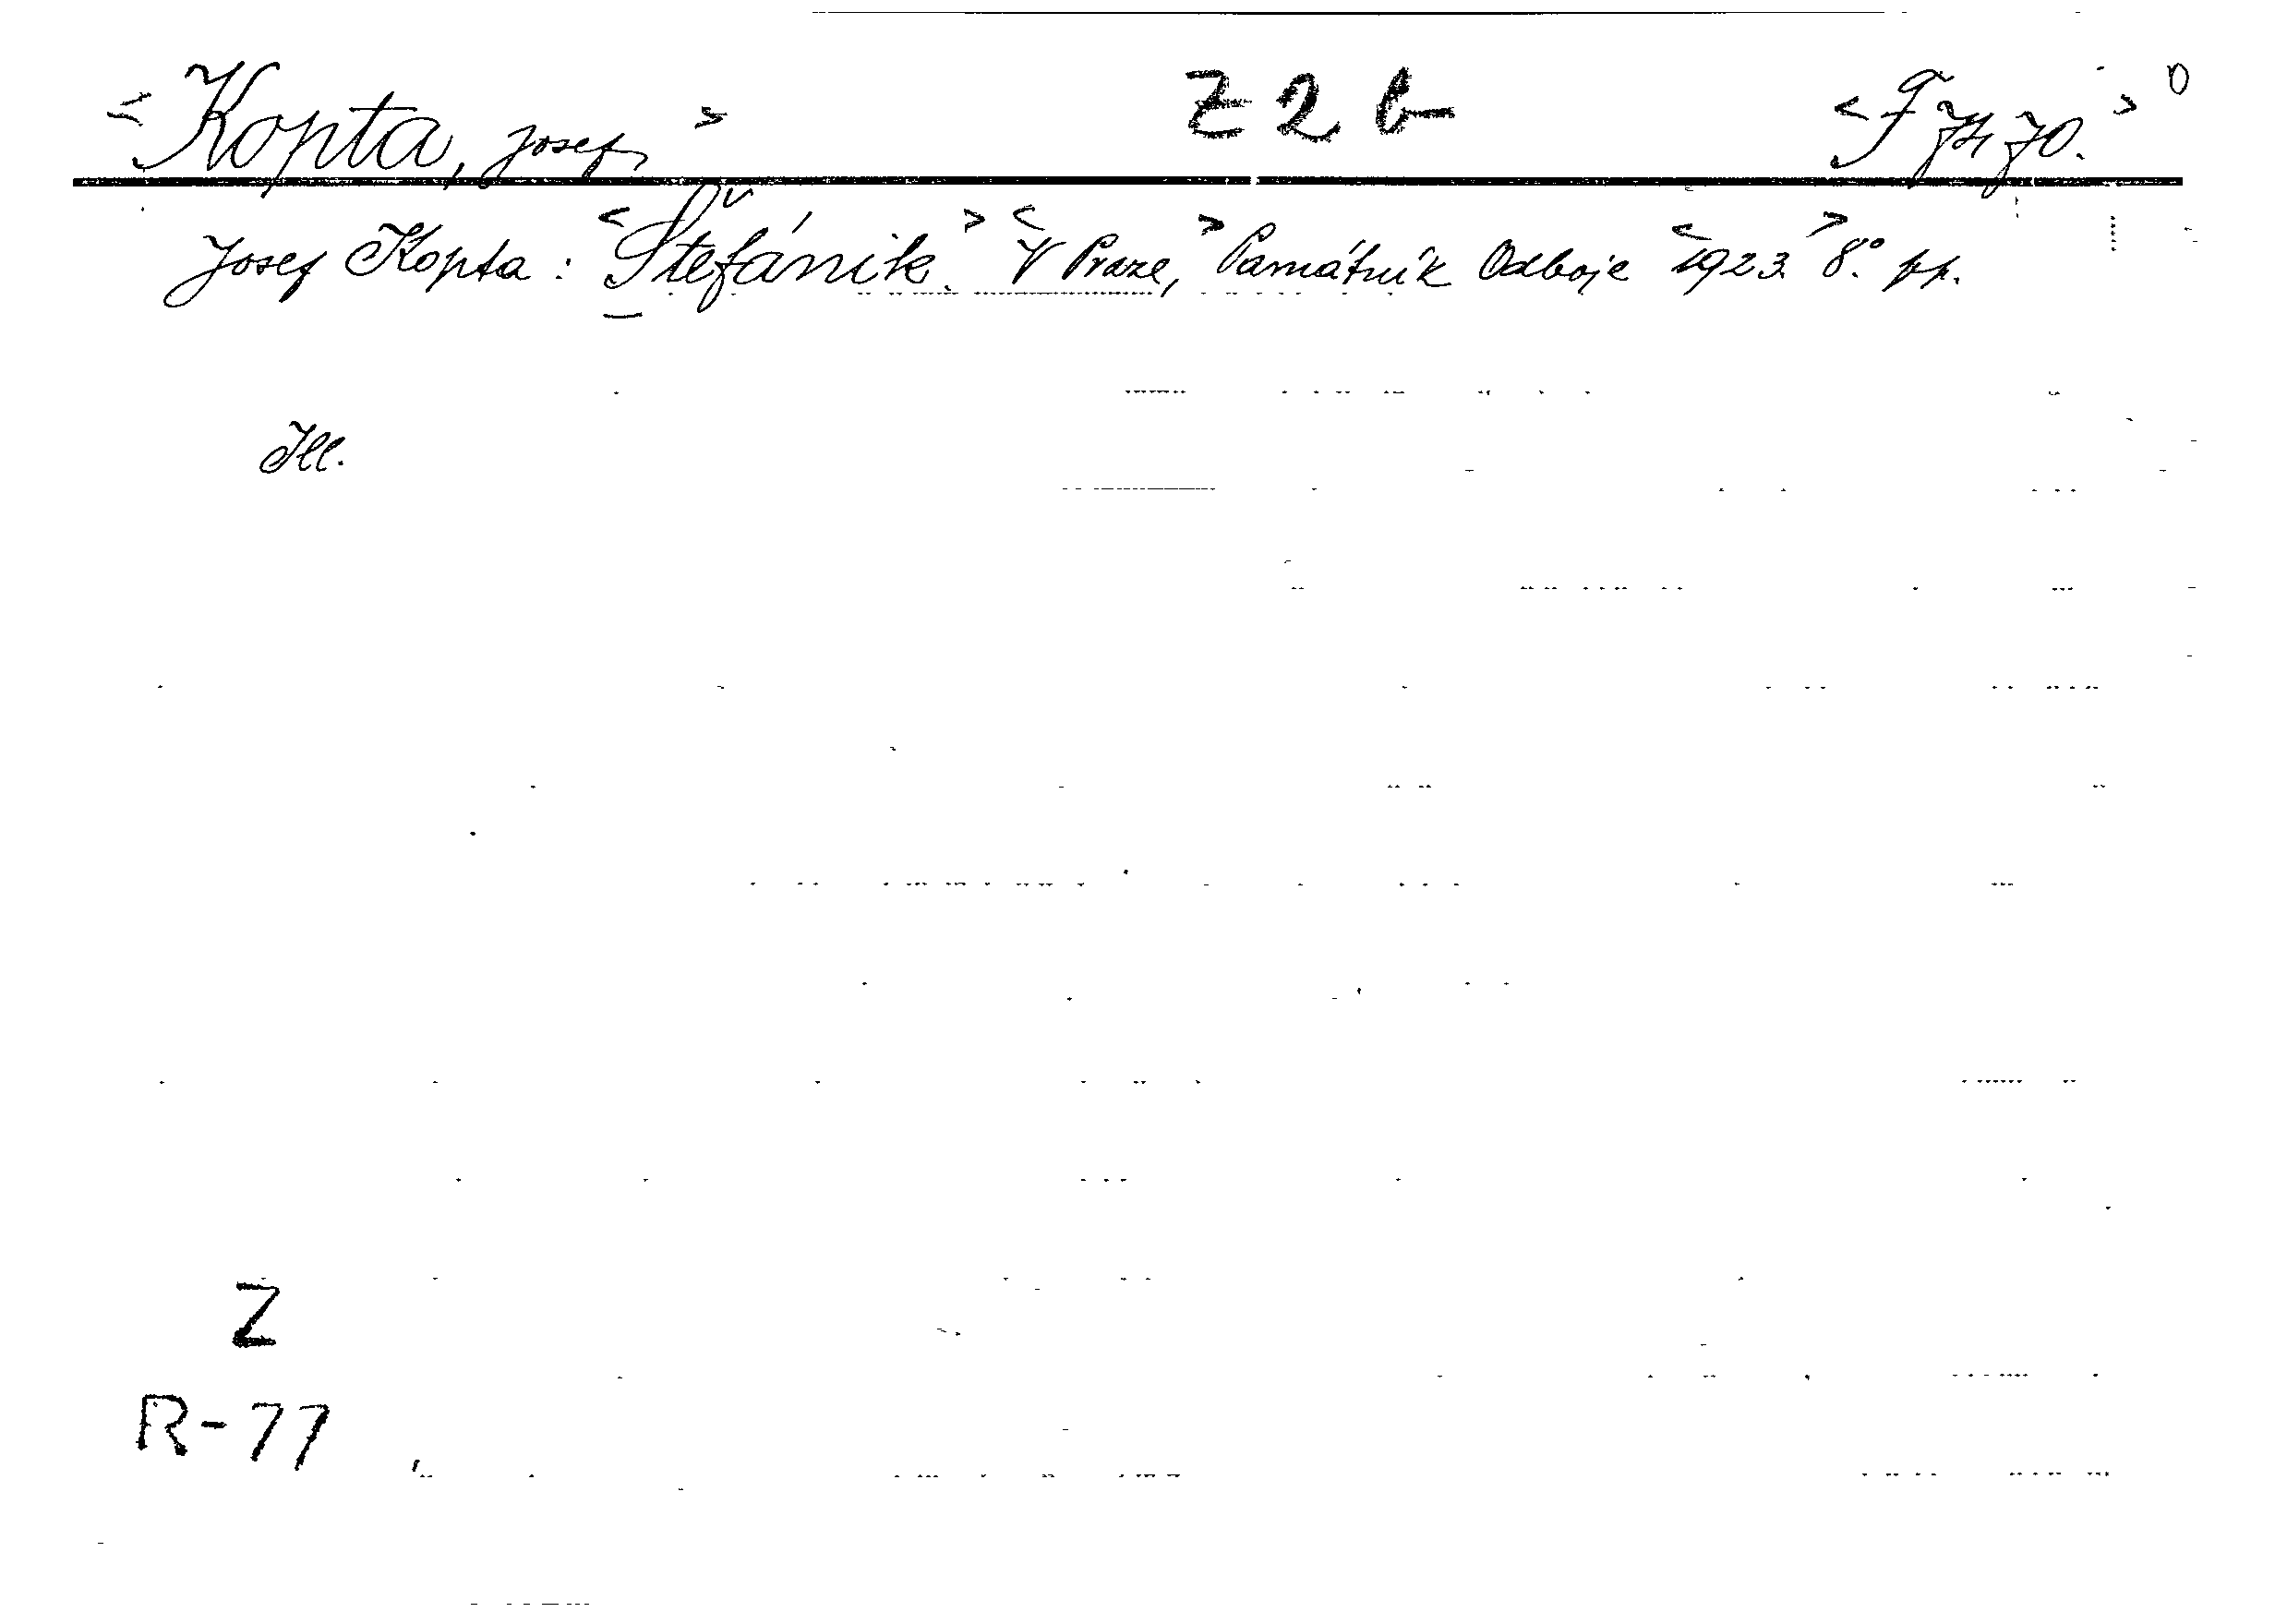 <Kopta, Josef> Z 2 b <F 7470.> 0
Josef Kopta: <Štefánik.> <V Praze,> Památník Odboje <1923.> 8.° pp.
Ill.
Z
R-77